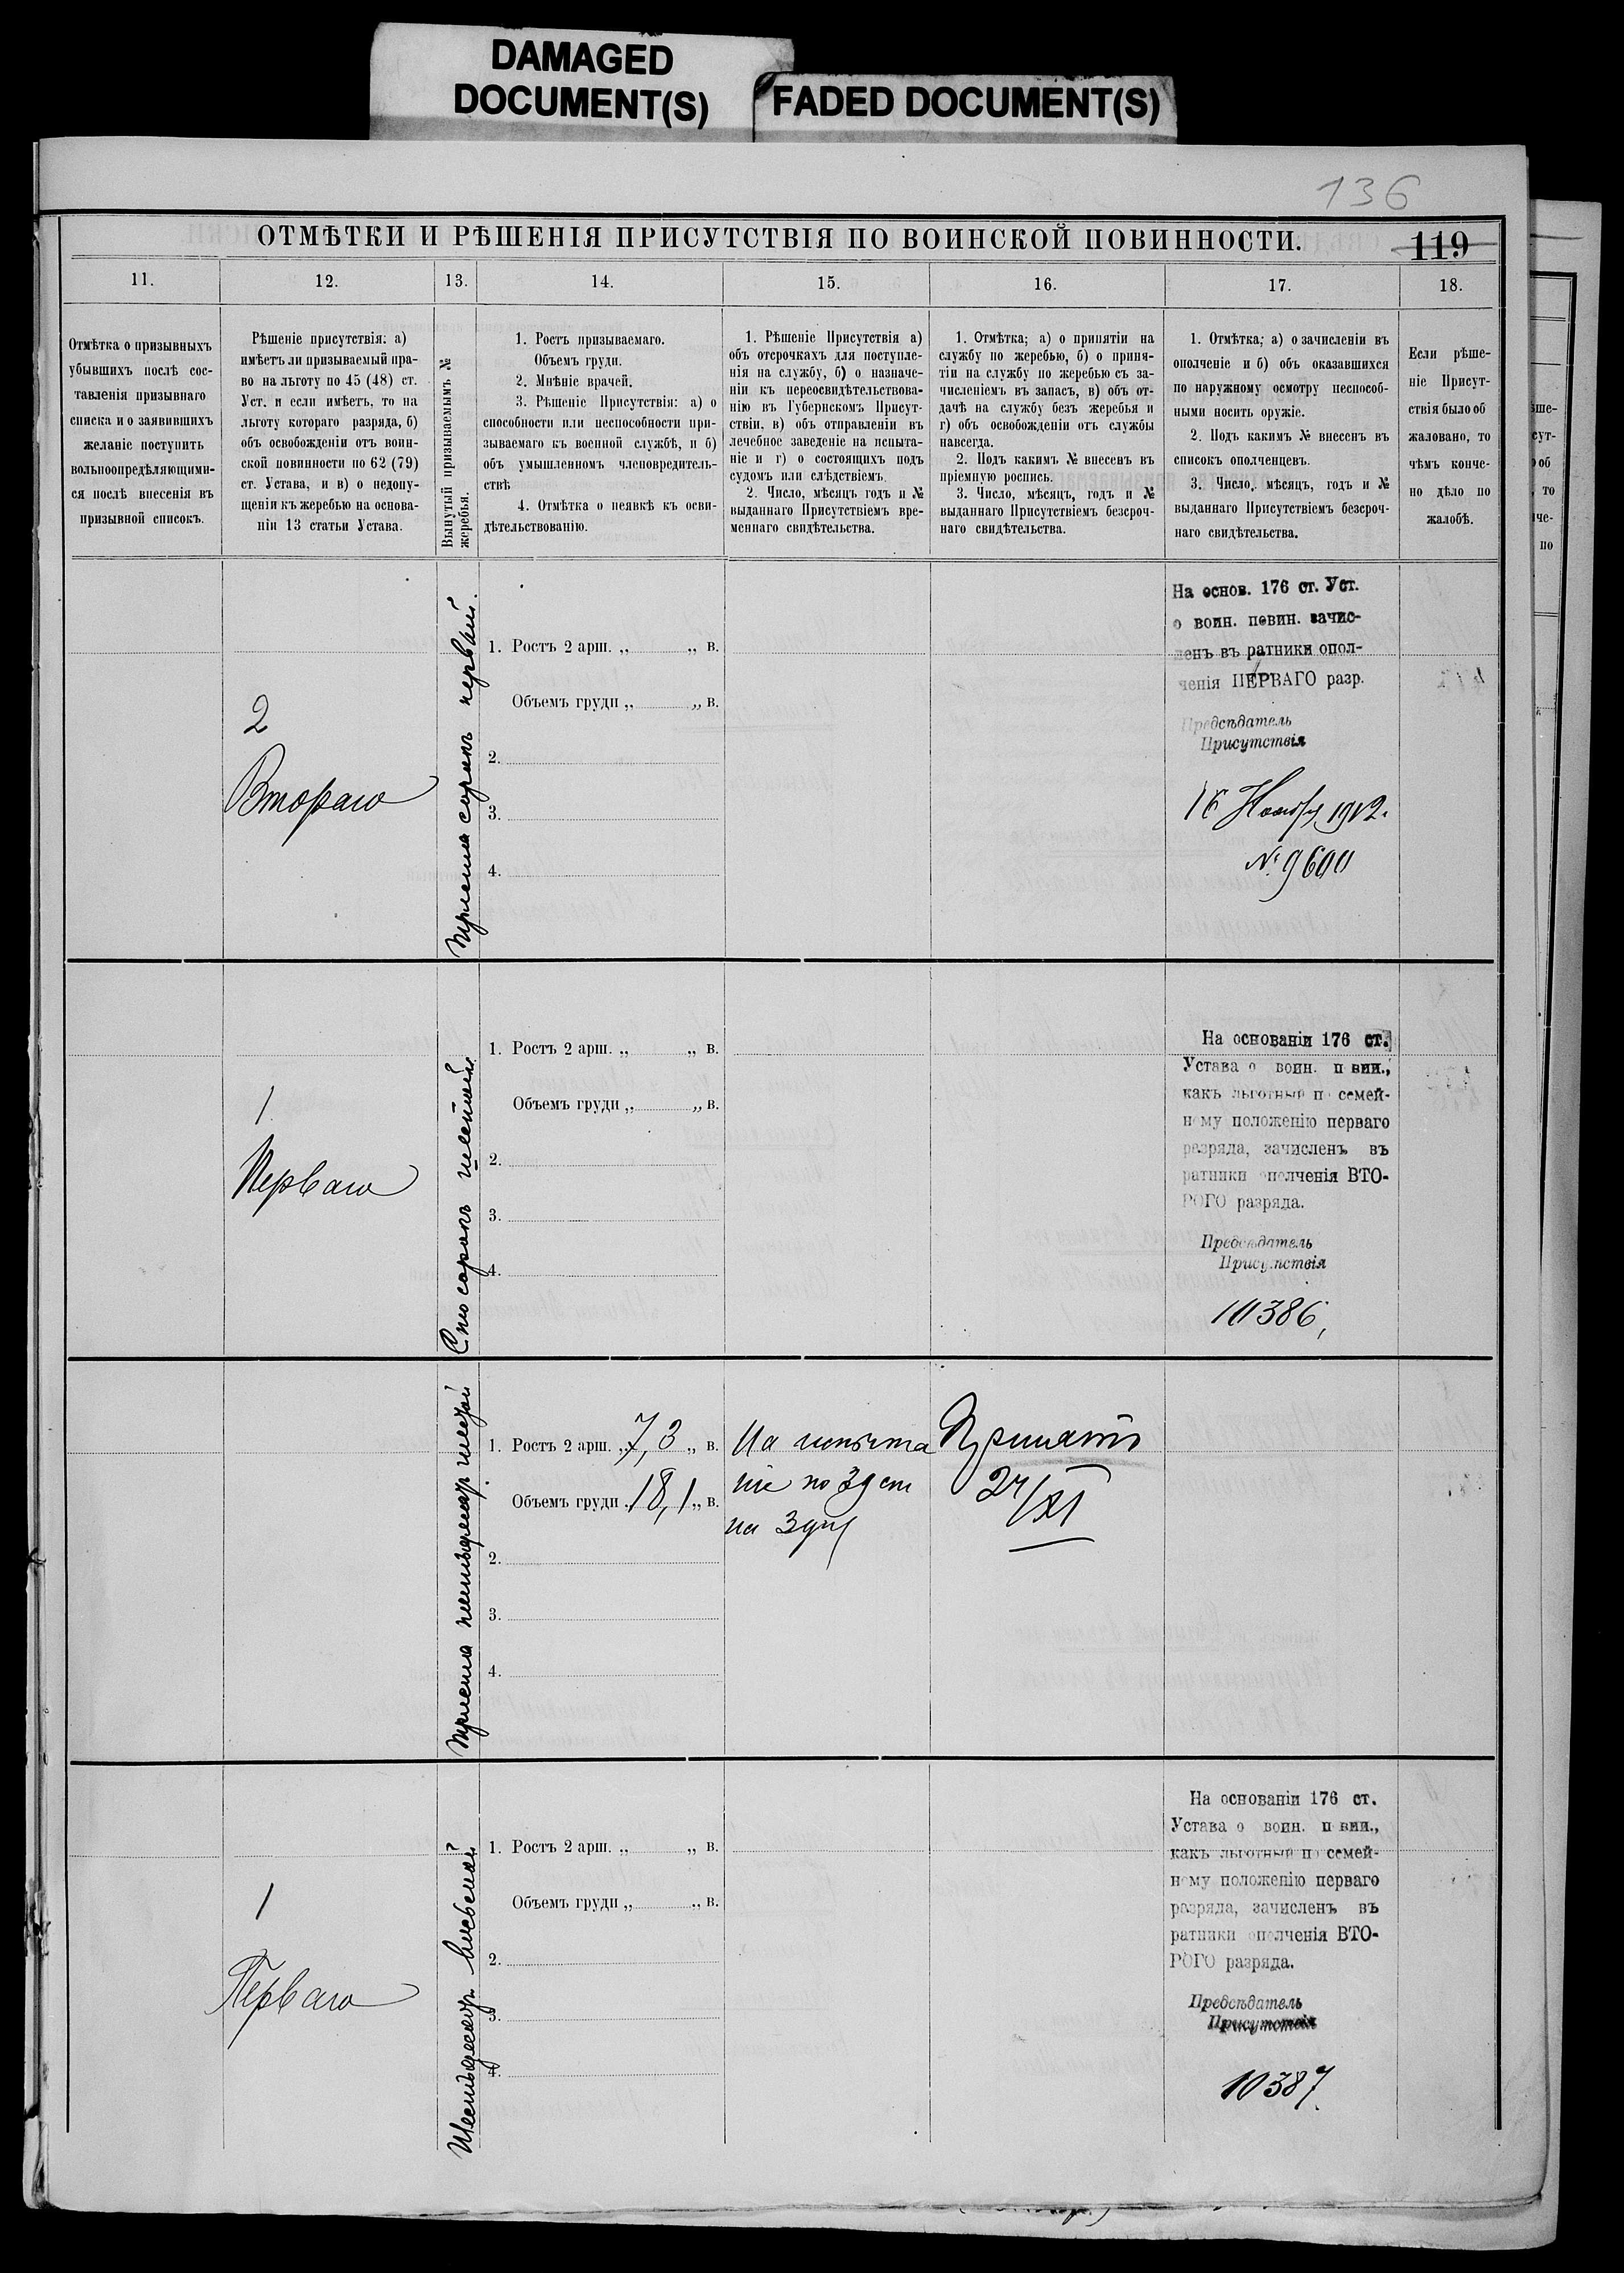 DAMAGED
DOCUMENT(S)
FADED DOCUMENT(S)
136
ОТМѢТКИ И РѢШЕНІЯ ПРИСУТСТВІЯ ПО ВОИНСКОЙ ПОВИННОСТИ.
119
11.
12.
13.
14.
15.
16.
17.
18.
Отмѣтка о призывныхъ
убывшихъ послѣ сос-
тавленія призывнаго
списка и о заявившихъ
желаніе поступить
вольноопредѣляющими-
ся послѣ внесенія въ
призывной списокъ.
Рѣшеніе присутствія: а)
имѣетъ ли призываемый пра-
во на льготу по 45 (48) ст.
Уст. и если имѣетъ, то на
льготу котораго разряда, б)
объ освобожденіи отъ воин-
ской повинности по 62 (79)
ст. Устава, и в) о недопу-
щеніи къ жеребью на основа-
ніи 13 статьи Устава.
Вынутый призываемымъ №
жеребья.
1. Ростъ призываемаго.
Объемъ груди.
2. Мнѣніе врачей.
3. Рѣшеніе Присутствія: а) о
способности или неспособности при-
зываемаго къ военной службѣ, и б)
объ умышленномъ членовредитель-
ствѣ
4. Отмѣтка о неявкѣ къ осви-
дѣтельствованію.
1. Рѣшеніе Присутствія а)
объ отсрочкахъ для поступле-
нія на службу, б) о назначе-
ніи къ переосвидѣтельствова-
нію въ Губернскомъ Присут-
ствіи, в) объ отправленіи въ
лечебное заведеніе на испыта-
ніе и г) о состоящихъ подъ
судомъ или слѣдствіемъ.
2. Число, мѣсяцъ годъ и №
выданнаго Присутствіемъ вре-
меннаго свидѣтельства.
1. Отмѣтка; а) о принятіи на
службу по жеребью, б) о приня-
тіи на службу по жеребью съ за-
численіемъ въ запасъ, в) объ от-
дачѣ на службу безъ жеребья и
г) объ освобожденіи отъ службы
навсегда.
2. Подъ какимъ № внесенъ въ
пріемную роспись.
3. Число, мѣсяцъ, годъ и №
выданнаго Присутствіемъ безсроч-
наго свидѣтельства.
1. Отмѣтка; а) о зачисленіи въ
ополченіе и б) объ оказавшихся
по наружному осмотру неспособ-
ными носить оружіе.
2. Подъ какимъ № внесенъ въ
списокъ ополченцевъ.
3. Число, мѣсяцъ, годъ и №
выданнаго Присутствіемъ безсроч-
наго свидѣтельства.
Если рѣше-
ніе Присут-
ствія было об
жаловано, то
чѣмъ конче-
но дѣло по
жалобѣ.
2
Втораго
Триста сорокъ первый.
1. Ростъ 2 арш. „ „ в.
Объемъ груди „ „ в.
2.
3.
4.
На основ. 176 ст. Уст.
о воин. повин. зачис-
ленъ въ ратники опол-
ченія ПЕРВАГО разр.
Предсѣдатель
Присутствія
16 Ноября 1912.
№ 9600
1
Перваго
Сто сорокъ шестой
1. Ростъ 2 арш. „ „ в.
Объемъ груди „ „ в.
2.
3.
4.
На основаніи 176 ст.
Устава о воин. п вин.,
какъ льготный п семей-
н му положенію перваго
разряда, зачисленъ въ
ратники ополченія ВТО-
РОГО разряда.
Предсѣдатель
Присутствія
10386,
Триста пятьдесят шестой
1. Ростъ 2 арш. „ 7,3 „ в.
Объемъ груди 18,1 „ в.
2.
3.
4.
На испыта
ніе по 39 ст
на
Принятъ
24/XI
1
Перваго
Шестьдесят восьмой
1. Ростъ 2 арш. „ „ в.
Объемъ груди „ „ в.
2.
3.
4.
На основаніи 176 ст.
Устава о воин. п вин.,
какъ льготный п семей-
ному положенію перваго
разряда, зачисленъ въ
ратники ополченія ВТО-
РОГО разряда.
Предсѣдатель
Присутствія
10387.